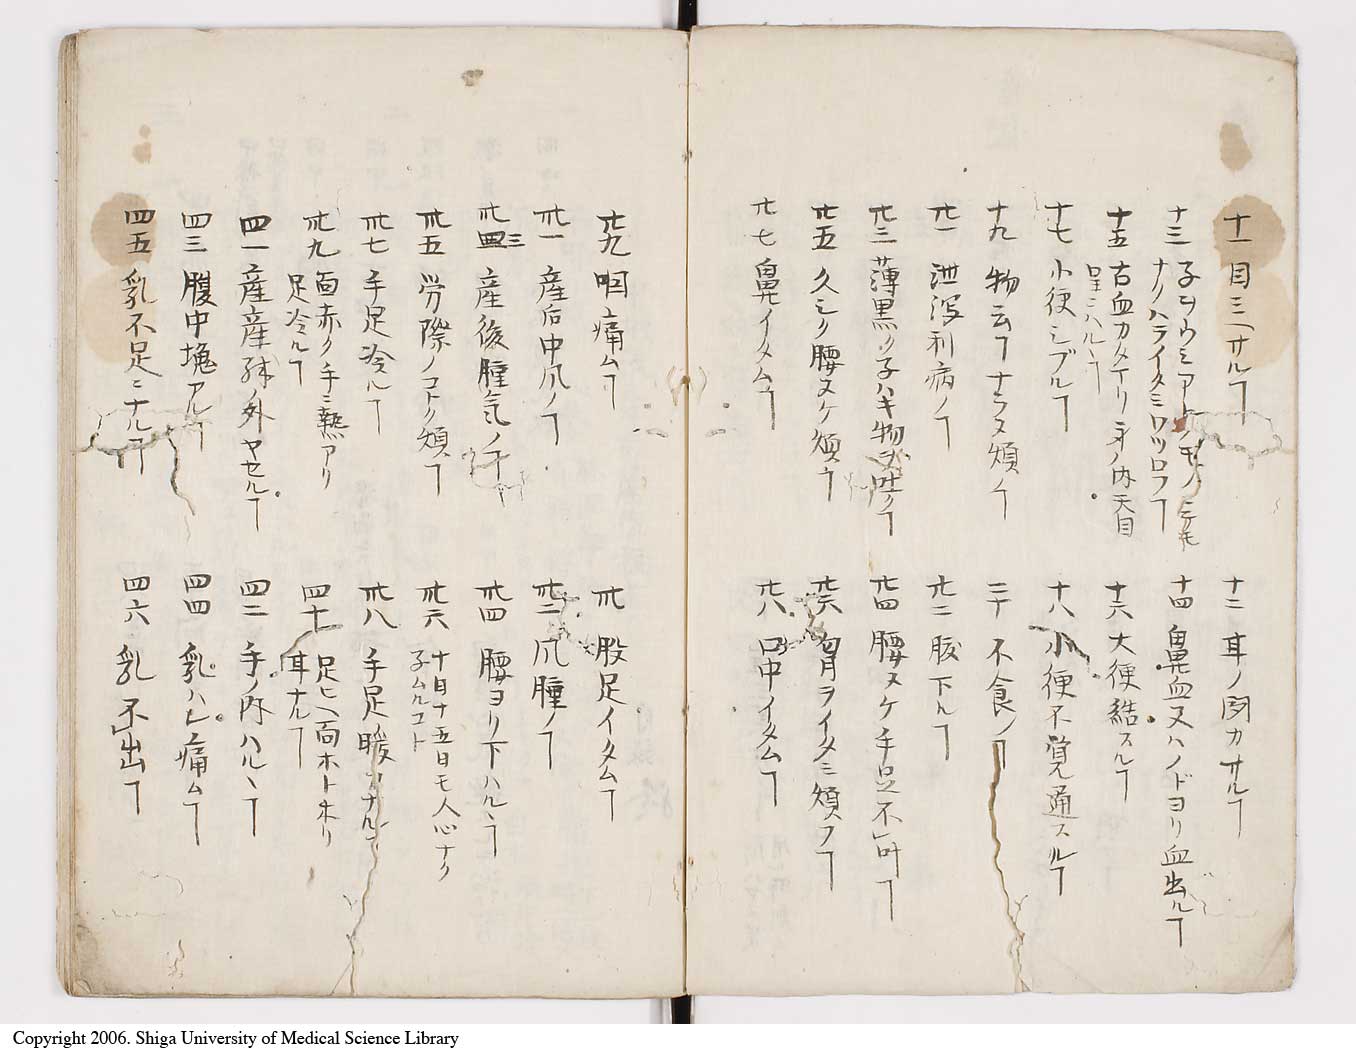 十一 目ミヘサルヿ
十二 耳ノ聞カサルヿ
十三 子ヲウミアトノモノ
ナリハライタミワツロフヿ
十四 鼻血又ハノドヨリ血出ルヿ
十五 古血カタマリ ノ内天目
呈ニハルヽヿ
十六 大便結スルヿ
十七 小便シブルヿ
十八 小便不覚通スルヿ
十九 物云フヿナラヌ煩
二十 不食ノヿ
廿一 泄瀉利病ノヿ
廿二 腹下ルヿ
廿三 薄黒ツ子ハキ物 吐クヿ
廿四 腰ヌケ手足不叶ヿ
廿五 久シク腰ヌケ煩フヿ
廿六 胸ヲイタミ煩フヿ
廿七 鼻イタムヿ
廿八 口中イタムヿ
廿九 咽痛ムヿ
卅 股足イタムヿ
卅一 産后中風ノヿ
卅二 風腫ノヿ
卅三 産後腫気ノヿ
卅四 腰ヨリ下ハルヽヿ
卅五 労際ノコトク煩ヿ
卅六 十日十五日モ人心ナク
子ムルコト
卅七 手足冷ルヿ
卅八 手足暖ナルヿ
卅九 面赤ク手ニ熱アリ
足冷ルヿ
四十 足ヒヘ面ホトホリ
耳ナルヿ
四一 産産 ノ外ヤセルヿ
四二 手ノ内ハルヽヿ
四三 腹中塊アルヿ
四四 乳ハレ痛ムヿ
四五 乳不足ニナルヿ
四六 乳不出ヿ
Copyright 2006. Shiga University of Medical Science Library